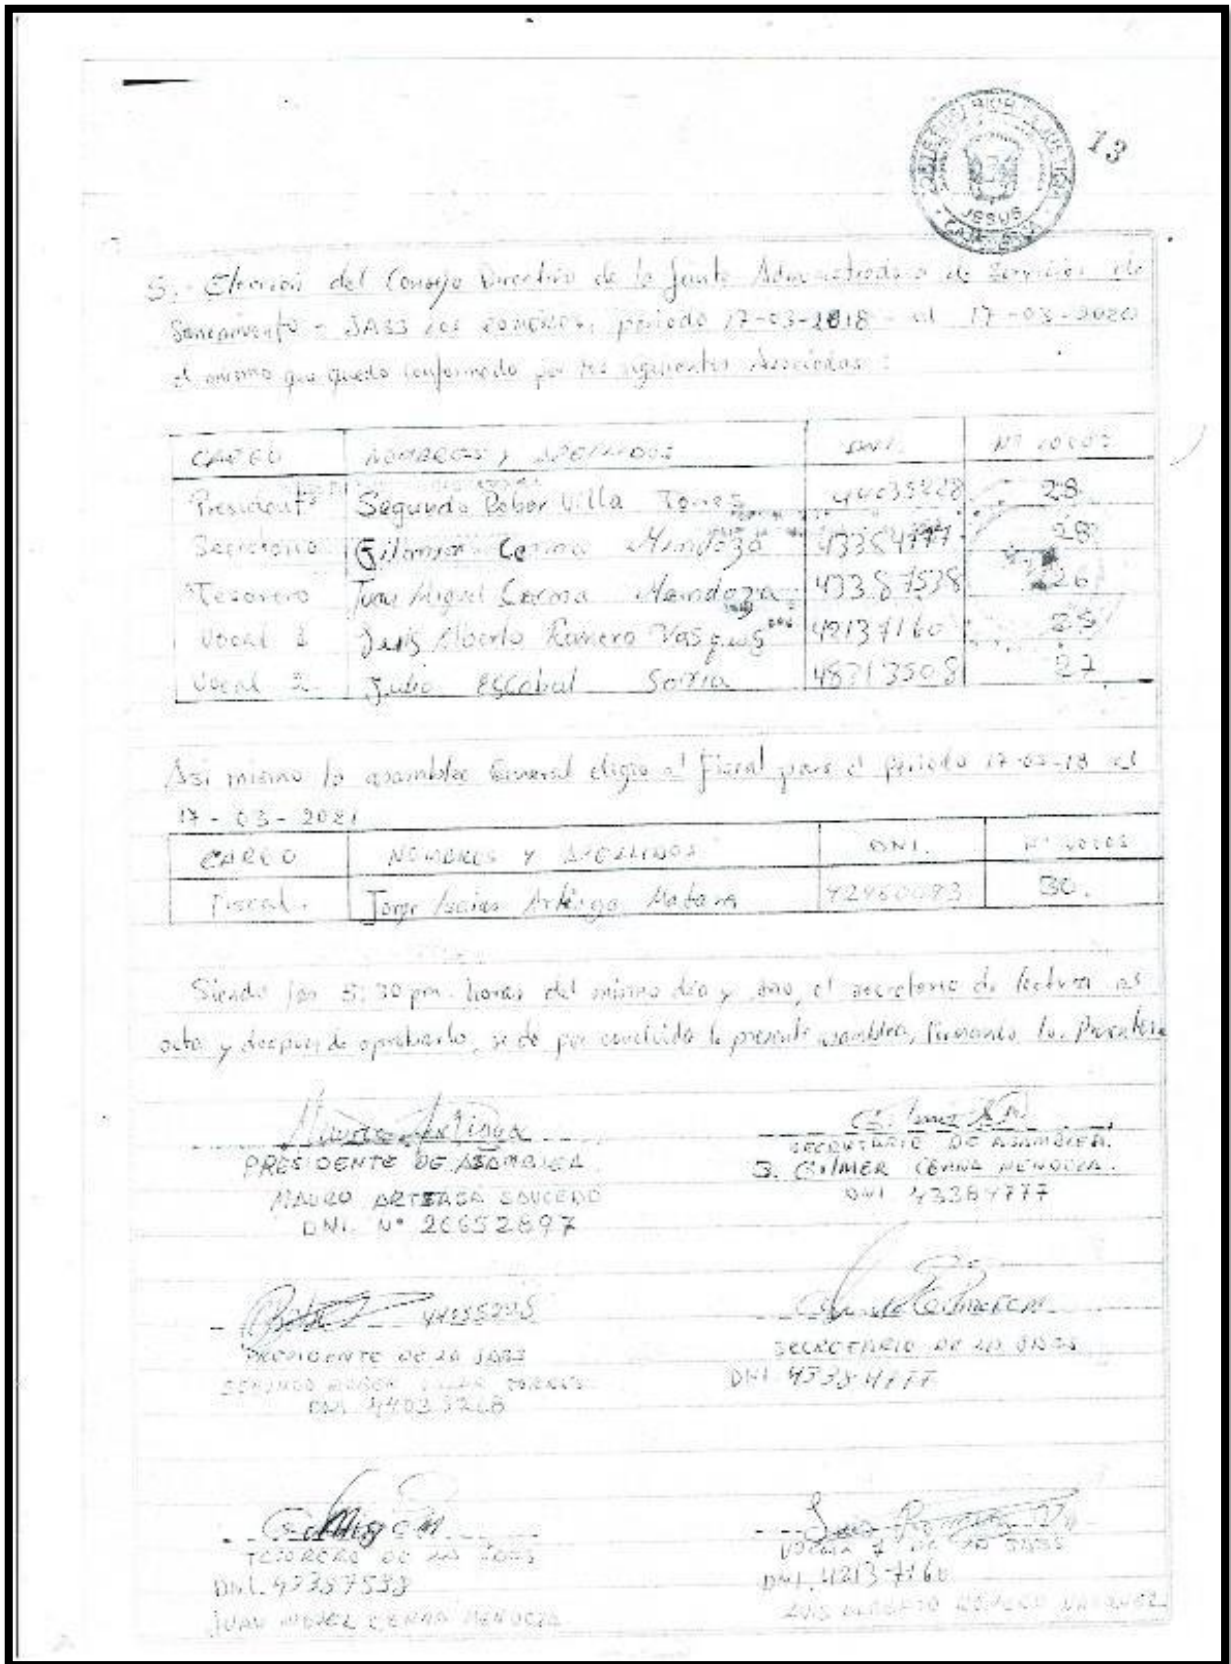 13
JESUS
5.- Elección del Consejo Directivo de la Junta Administradora de Servicios de
Saneamiento - JASS Los, periodo 17-03-2018 - al 17-03-2020
el mismo que quedo conformado por los siguientes Asociados:
CARGO NOMBRES Y APELLIDOS DNI. Nº VOTOS
Presidente Segundo Rober Villa Torres 44035228 28
Secretario Gilmer Cerna Mendoza 43384777 28
Tesorero Juan Miguel Cerna Mendoza 43387538 26
Vocal 1 Luis Alberto Romero Vasques 42137160 25
Vocal 2 Julio Escobal Soria 48713508 27
Asi mismo la asamblea General eligio al Fiscal para el periodo 17-03-18 al
17-03-2021
CARGO NOMBRES Y APELLIDOS DNI. Nº VOTOS
Fiscal. Jorge Isaias Arteaga Matara 42460093 30.
Siendo las 5:30 pm. horas del mismo dia y año, el secretario da lectura al
acta y despues de aprobarlo, se da por concluido la presente asamblea, firmando los Presentes
PRESIDENTE DE ASAMBLEA.
MAURO ARTEAGA SAUCEDO
DNI. Nº 26652897
SECRETARIO DE ASAMBLEA.
S. GILMER CERNA MENDOZA.
DNI 43384777
44035228
PRESIDENTE DE LA JASS
SEGUNDO ROBER VILLA TORRES
DNI. 44035228
SECRETARIO DE LA JASS
DNI 43384777
TESORERO DE LA JASS
DNI. 43387538
JUAN MIGUEL CERNA MENDOZA
VOCAL 1 DE LA JASS
DNI. 42137160
LUIS ALBERTO ROMERO VASQUEZ